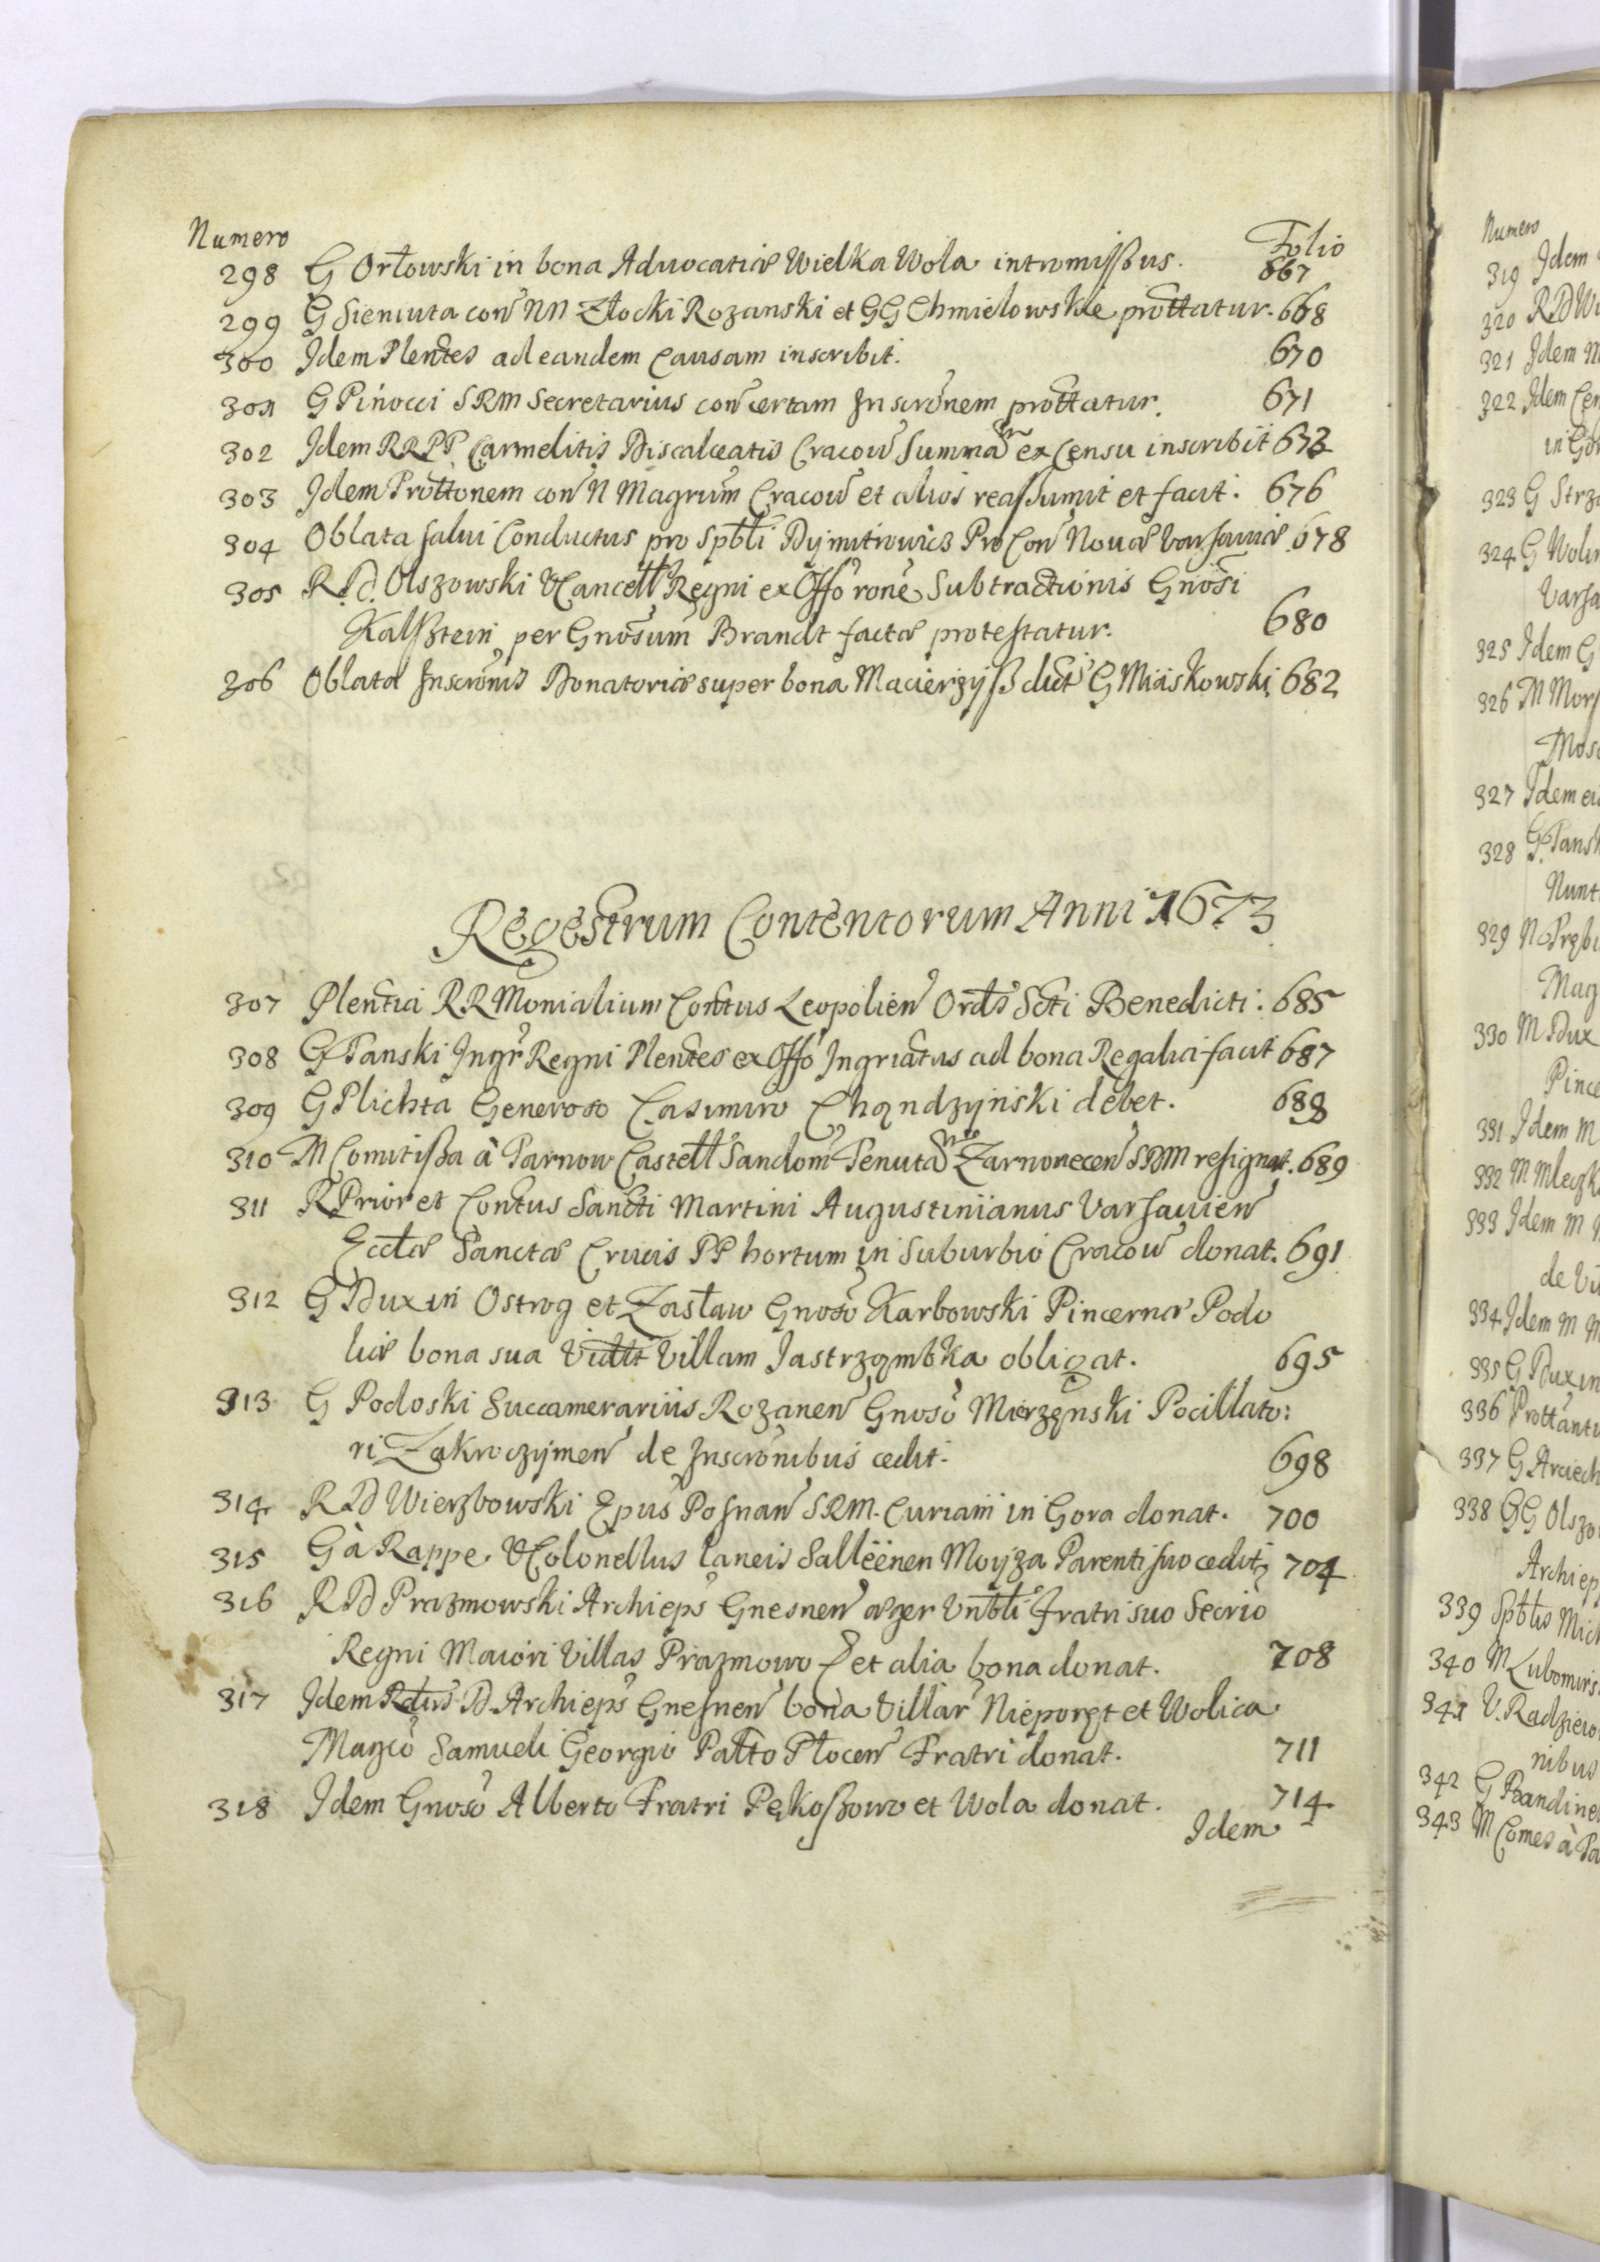 Numero Folio
298 G Orłowski in bona Aduocatiæ Wielka Wola intromissus. 667
299 G Sieniuta con NN Złocki Rozanski et GG Chmielowskie prottatur. 668
300 Idem Plentes ad eandem Causam inscribit. 670
301 G Pinocci SRM Secretarius con certam Inscronem prottatur. 671
302 Idem RRPP Carmelitis Discalceatis Cracow Summam ex Censu inscribit 673
303 Idem Prottonem con N Magrum Cracow et alios reassumit et facit. 676
304 Oblata salui Conductus pro Spbli Dymitrowicz Pro Con Nouæ Varsauiæ 678
305 R.D. Olszowski VCancell Regni ex Offo rone Subtractionis Gnosi
Kalsztein per Gnosum Brandt factæ protestatur. 680
306 Oblata Inscronis Donatoriæ super bona Macierzysz dict G Miaskowski 682
Regestrum Contentorum Anni 1673
307 Plentia RR Monialium Contus Leopolien Ordis Scti Benedicti. 685
308 G Tanski Ingr Regni Plentes ex Offo Ingriatus ad bona Regalia facit 687
309 G Plichta Generoso Casimiro Chądzyński debet. 688
310 M Comitissa à Tarnow Castell Sandom Tenutam Zarnonecen SRM resignat. 689
311 R Prior et Contus Sancti Martini Augustinianus Varsauien
Eccłæ Sanctæ Crucis PP hortum in Suburbio Cracow donat. 691
312 G Dux in Ostrog et Zasław Gnoso Karbowski Pincernæ Podo
liæ bona sua Vidlt Villam Jastrzombka obligat. 695
313 G Podoski Succamerariis Rozanen Gnoso Mierzęnski Pocillato:
ri Zakroczymen de Inscronibus cedit. 698
314 RD Wierzbowski Epus Posnan SRM. Curiam in Gora donat. 700
315 G à Rappe. VColonellus Laneis Salleënen Moyza Parenti suo cedit 704
316 RD Prazmowski Archieps Gnesnen æger Vnbli Fratri suo Secrio
Regni Maiori Villas Prazmowo et alia bona donat. 708
317 Idem Rdus D. Archieps Gnesnen bona Villar Nieporęt et Wolica
Magco Samueli Georgio Palto Płocen Fratri donat. 711
318 Idem Gnoso Alberto Fratri Pękoszowo et Wola donat. 714
Idem
Numero
319 Idem
320 RD Wi
321 Idem M
322 Idem Cen
in Gor
323 G Strz
324 G Wolin
Varsa
325 Idem G
326 M Mors
Mosc
327 Idem ei
328 G. Tansk
Nunt
329 N Przbi
Mag
330 M Dux
Pince
331 Idem M
332 M Mleczk
333 Idem M
de Vi
334 Idem M M
335 G Dux in
336 Prottantu
337 G Arciech
338 GG Olszo
Archiep
339 Spblis Mich
340 M Lubomirs
341 V. Radzieio
nibus
342 G Bandine
343 M Comes à Ta